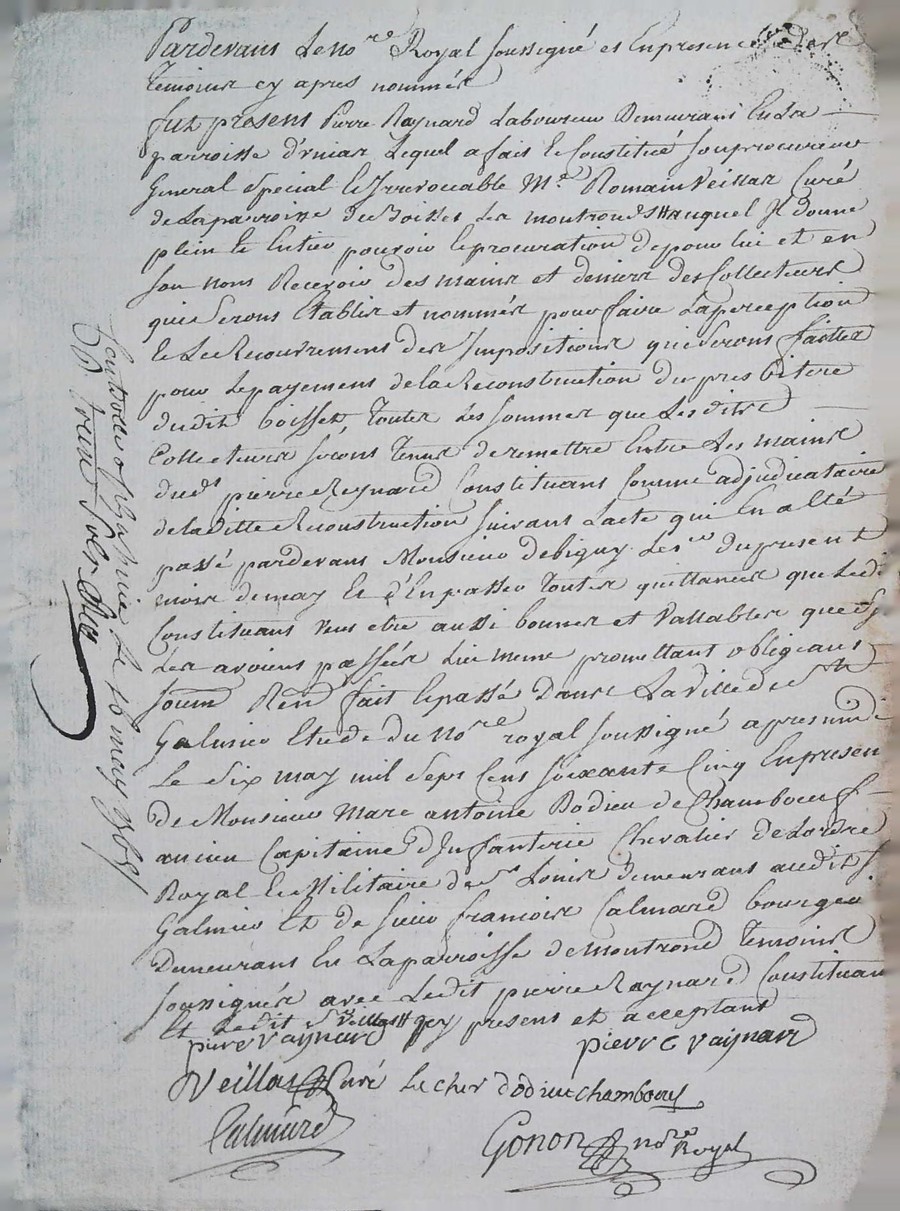 Pardevant Le no.re Royal soussigné et En presence des
temoins cy apres nommés
fut present Pierre Raynard Laboureur Demeurant En La
parroisse d'uniar Lequel a fait et Constitué son procureur
General special et Irrevocable M.e Romain Veillas Curé
de La parroisse de Boisset Les montrond auquel Il donne
plein et Entier pouvoir et procuration de pour lui et en
son nom Recevoir des mains et deniers des Collecteurs
qui seront Etablis et nommés pour faire La perception
et Le Recouvrement des Impositions qui seront faittes
pour le payement de la Reconstruction du presbitere
dudit boisset, toutes Les sommes que Les dits
Collecteurs seront tenus de remettre Entre Les mains
dud.t pierre Reynard Constituant Comme adjudicataire
de la ditte Reconstruction suivant L'acte qui En a Eté
passé pardevant Monsieur debigny Les du present
mois de may Et d'En passer toutes quittances que Ledi
Constituant veut etre aussi bonnes et vallables que s'il
Les avoient passées Lui meme promettant obligeant
soum Ren fait et passé Dans La ville de St
Galmier Etude du no.re royal soussigné apres midi
Le six may mil sept Cent soixante Cinq En presen
de Monsieur Marc antoine Dodieu de Chamboeuf
ancien Capitaine d'Infanterie Chevalier de L'ordre
Royal et Militaire de St Louis demeurant audit S
Galmier Et de sieur francois Calmard bourgeoi
Demeurant En La parroisse de Montrond temoins
soussignés avec Ledit pierre Raynard Constituan
Et Ledit Sr Veillas cy present et acceptant
pierre Raynard
pierre Raynard
Veillas Curé Le cher dodieu chamboeuf
Calmard
Gonon no.re Royal
Le 16 may 1765